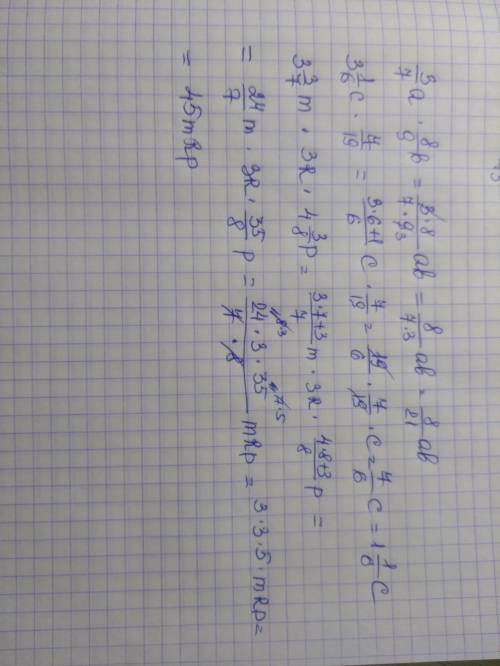 3/7 a · 8/9 b = 3·8/7·9₃ ab = 8/7·3 ab = 8/21 ab
3 1/6 c · 7/19 = 3·6+1/6 c · 7/19 = 19/6 · 7/19 · c = 7/6 c = 1 1/6 c
3 3/7 m · 3k · 4 3/8 p = 3·7+3/7 m · 3k · 4·8+3/8 p =
= 24/7 m · 3k · 35/8 p = 24·3·35/7·8 mkp = 3·3·5·mkp =
= 45mkp